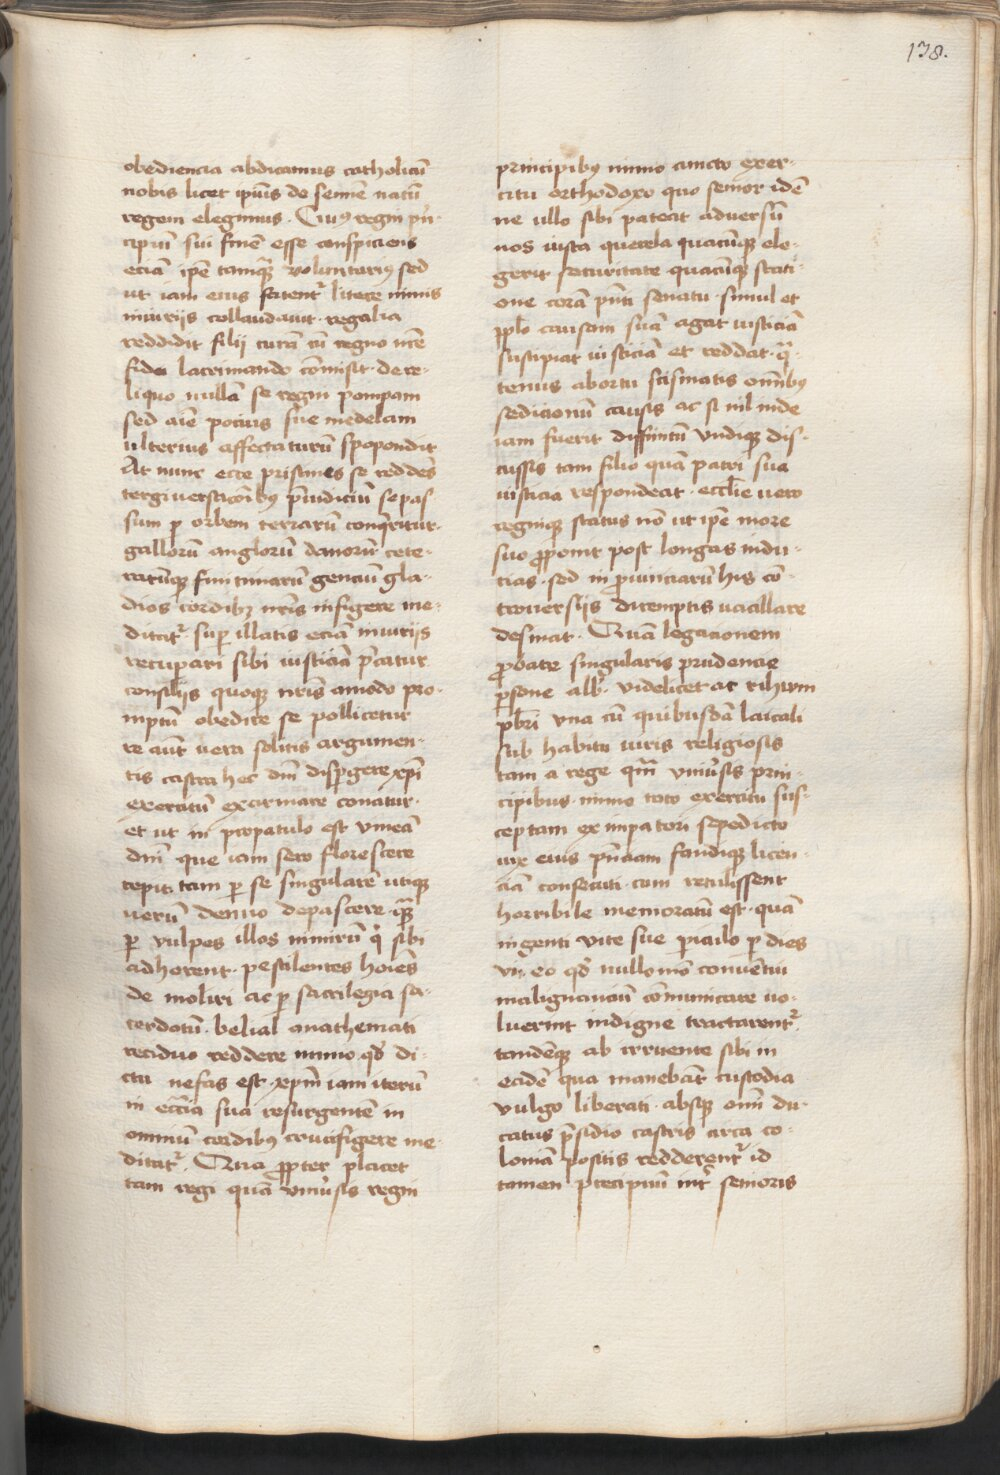 138.
obediencia abdicamus catholicū
nobis licet ipius de semīe natū
regem elegimus. Cuiꝰ regni pⁱn-
cipiū sui finē esse conspiciens
eciā ipē tamqꝫ voluntariꝰ sed
ut iam eius fatentᷣ litere nimis
iniuriis collaudavit. regalia
reddidit filij curā cū regno nr̄e
fidei lacrimando cōmisit. de re-
liquo nullā se regni pompam
sed aīe pocius sue medelam
ulterius affectaturū spopondit
At nunc ecce pristines se reddēs
tergiversacōibꝰ p̄iudiciū se pas-
sum ꝑ orbem terrarū conqⁱritur.
gallorū anglorū danorū cete-
rarūqꝫ finitimarū genciū gla-
dios cordibꝫ nr̄is infigere me-
ditatᷣ. suꝑ illatis eciā iniuriis
recuꝑari sibi iusticiā p̄catur
consiliis quoqꝫ nr̄is amodo pro-
mptū obedire se pollicetur
re aūt vera solitis argumen-
tis castra hec dn̄i disꝑgere xp̄i
exercitū exarmare conatur.
et ut in propatulo est vineā
dn̄i que iam sero florescere
cepit. tam ꝑ se singularē utiqꝫ
verū denuo depascere. qꝫ̄
ꝑ vulpes illos nimirū qⁱ sibi
adherent. pestilentes hoīes
demoliri ac ꝑ sacrilegia sa-
cerdotū. belial anathemati
reciduo reddere immo qd̄ di-
ctu nefas est. xp̄m iam iterū
in ecc̄ia sua resurgentē in
omniū cordibꝰ crucifigere me-
ditatᷣ. Qua ꝓpter placet
tam regi quā univ̓sis regni
principibꝰ immo cuncto exer-
citu orthodoxo quo senior idē
ne ullo sibi pateat adversū
nos iusta querela quacūqꝫ ele-
gerit securitate quacūqꝫ stati-
one corā p̄nti senatu. simul et
ppl̄o causam suā agat iusticiā
suscipiat iusticiā et reddat. qᷓ-
tenus abortu scismatis oīmbꝰ
sedicionū causis ac si nil inde
iam fuerit diffinitū undiqꝫ dis-
cussis tam filio quā patri sua
iusticia respondeat. eccl̄ie vero
regniqꝫ status nō ut ipē more
suo ꝓponit post longas indu-
cias. sed in p̄uinciarū his cō-
troversiis diremptis vacillare
desinat. Quā legacionem
ꝓbate singularis prudencie
ꝑsone alb̓. videlicet ac rihwm
pbr̄i una cū quibusdā laicali
sub habitu viris religiosis
tam a rege qm̄ univ̓sis prin-
cipibus. immo toto exercitu sus-
ceptam ex impatori sepedicto
vix eius p̄nciam fandiqꝫ licen-
ciā consecuti. cum retulissent
horribile memoratū est. quā
ingenti vite sue piculo ꝑ dies
vi. eo qd̄ nullomō conventui
malignanciū cōmunicare vo-
luerint indigne tractarentᷣ.
tandēqꝫ ab irruente sibi in
eadē qua manebāt custodia
vulgo liberati. absqꝫ oīm du-
catus p̄sidio castris circa co-
loniā positis redderentᷣ id
tamen precipuū int̓ senioris